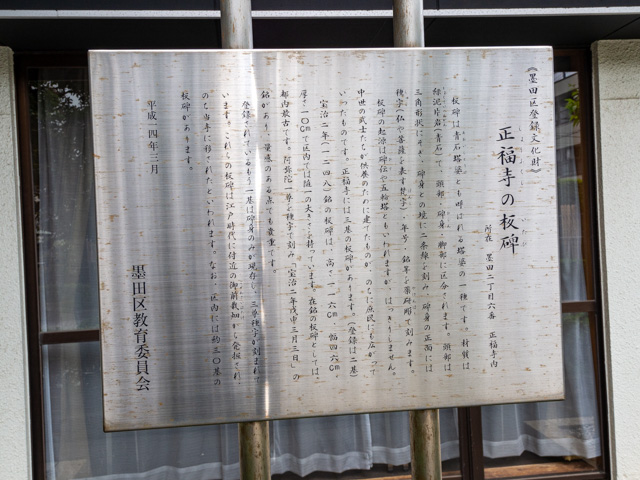 《墨田区登録文化財》
正福寺の板碑
所在 墨田二丁目六番 正福寺内
板碑は青石塔婆とも呼ばれる塔婆の一種です。材質は
緑泥片岩(青石)で、頭部・碑身・脚部に区分されます。頭部は
三角形状にそぎ、碑身との境に二条線を刻み、碑身の正面には
種字(仏や菩薩を表す梵字)・年号・銘等を薬研彫で刻みます。
板碑の起源は碑伝や五輪塔ともいわれますが、はっきりしません。
中世の武士たちが供養のために建てたものが、のちに庶民にも広がって
いったものです。正福寺には三基の板碑があります。(登録は二基)
宝治二年(一二四八)銘の板碑は、高さ一一六cm・幅四六cm・
厚さ一〇cmで区内では随一の大きさを持っています。在銘の板碑としては、
都内最古です。阿弥陀一尊を種字で刻み「宝治二年戊申三月三日」の
銘があり、量感のある点でも貴重です。
登録されているもう一基は碑身のみが現存し、三尊種字が刻まれて
います。これらの板碑は江戸時代に付近の御前栽畑から発掘され、
のち当寺に移されたといわれます。なお、区内には約三〇基の
板碑があります。
平成一四年三月
墨田区教育委員会